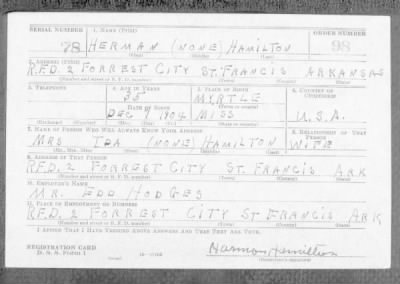 SERIAL NUMBER 1. NAME (PRINT) ORDER NUMBER
78 HERMAN (NONE) HAMILTON 98
(First) (Middle) (Last)
2. ADDRESS (PRINT)
R.F.D. 2 FORREST CITY ST. FRANCIS ARKANSAS
(Number and street or R. F. D. number) (Town) (County) (State)
3. TELEPHONE 4. AGE IN YEARS 5. PLACE OF BIRTH 6. COUNTRY OF CITIZENSHIP
35 MYRTLE
DATE OF BIRTH (Town or county)
DEC 1904 MISS U.S.A.
(Mo.) (Day) (Yr.) (State or country)
7. NAME OF PERSON WHO WILL ALWAYS KNOW YOUR ADDRESS 8. RELATIONSHIP OF THAT PERSON
MRS IDA (NONE) HAMILTON WIFE
(Mr., Mrs., Miss) (First) (Middle) (Last)
9. ADDRESS OF THAT PERSON
R.F.D. 2 FORREST CITY ST. FRANCIS ARK
(Number and street or R. F. D. number) (Town) (County) (State)
10. EMPLOYER'S NAME
MR. EDD HODGES
11. PLACE OF EMPLOYMENT OR BUSINESS
R.F.D. 2 FORREST CITY ST FRANCIS ARK
(Number and street or R. F. D. number) (Town) (County) (State)
I AFFIRM THAT I HAVE VERIFIED ABOVE ANSWERS AND THAT THEY ARE TRUE.
REGISTRATION CARD
D. S. S. Form 1 Harmon Hamilton
(Registrant's signature)